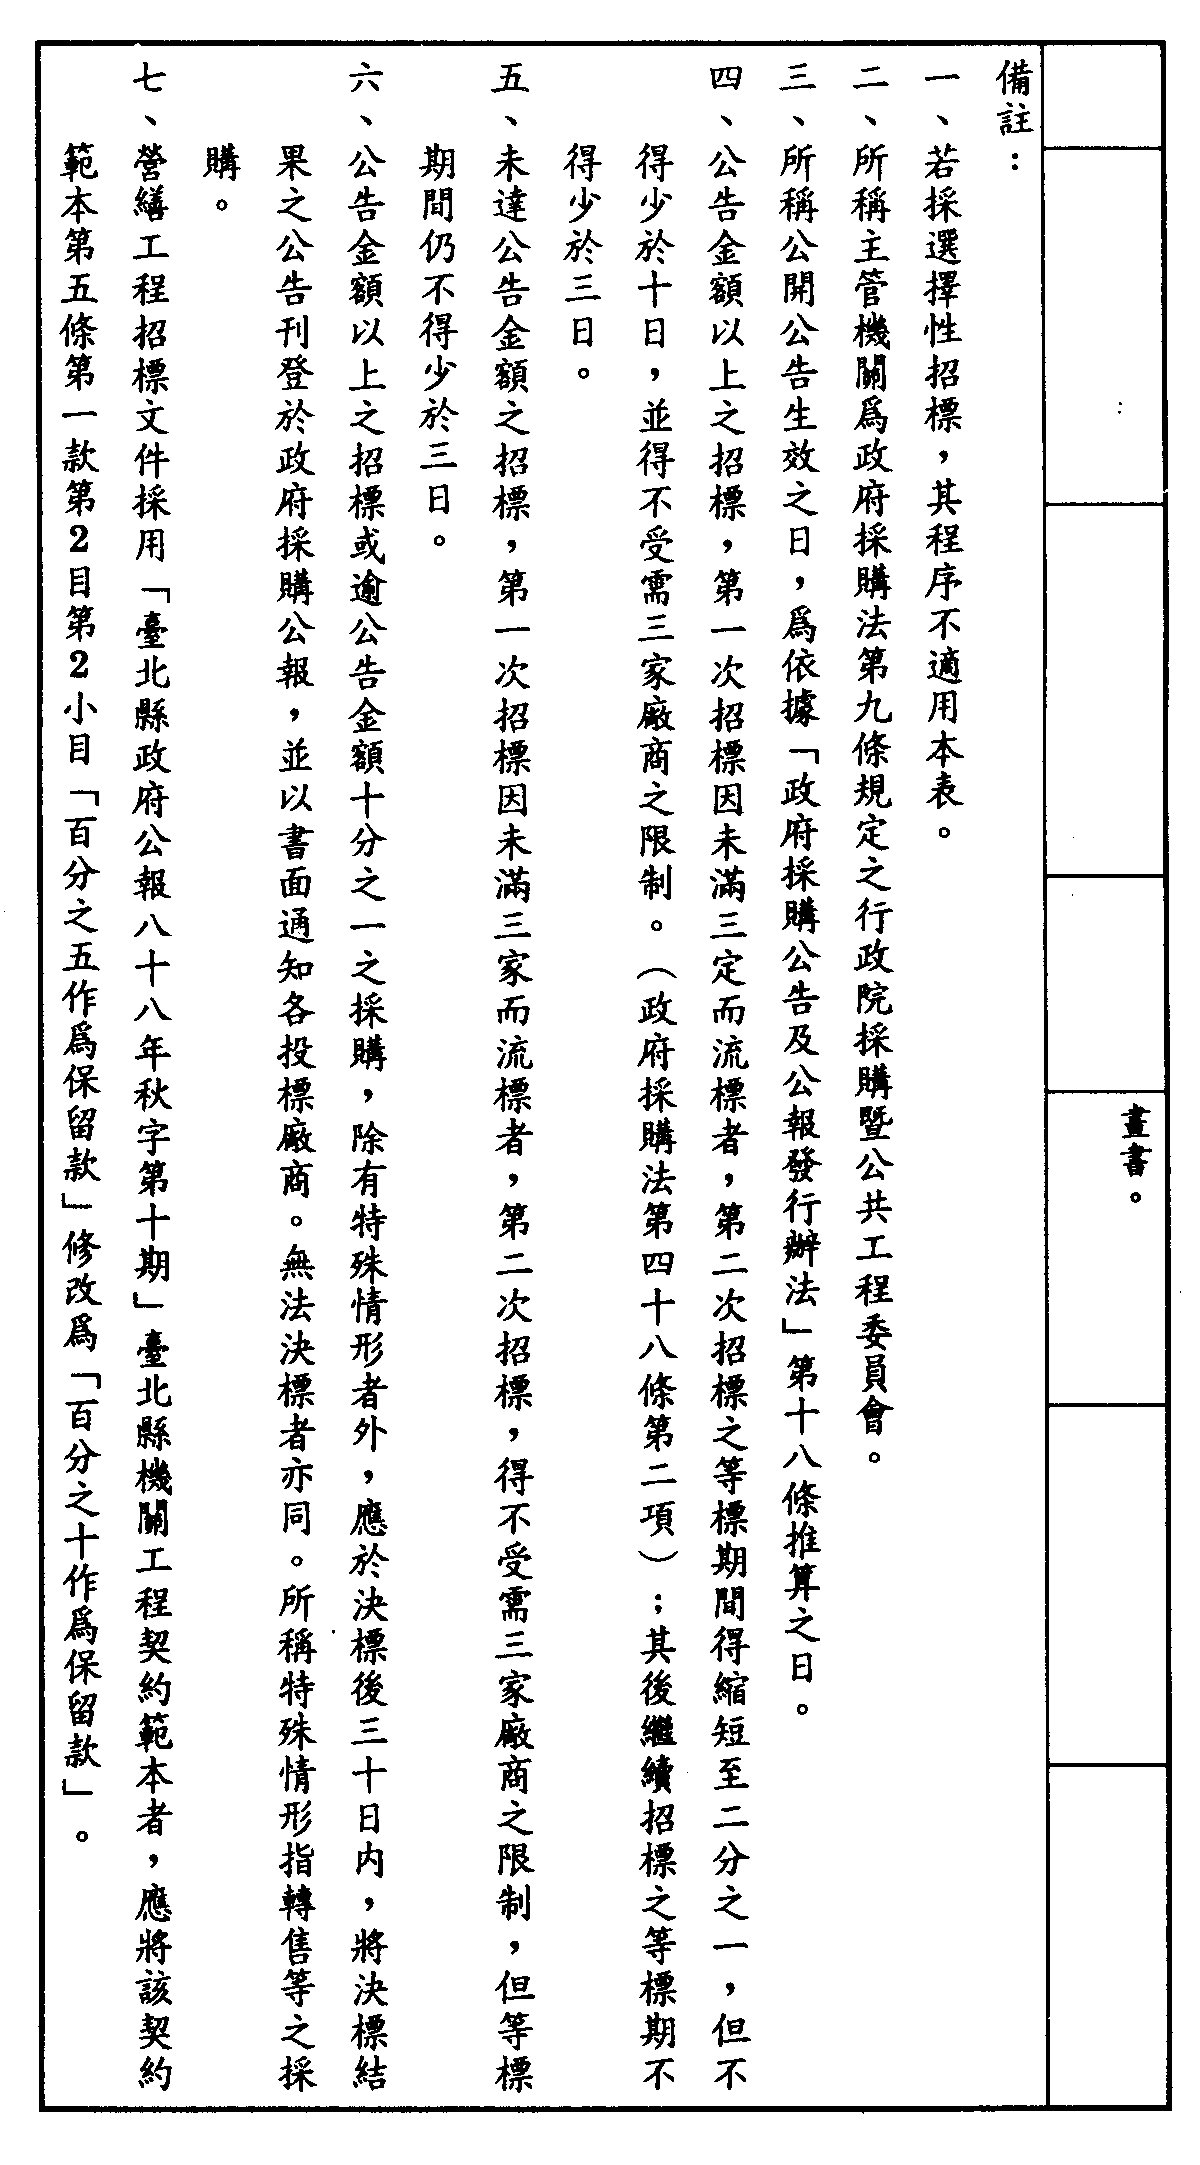 畫書。
備註：
一、若採選擇性招標，其程序不適用本表。
二、所稱主管機關為政府採購法第九條規定之行政院採購暨公共工程委員會。
三、所稱公開公告生效之日，為依據「政府採購公告及公報發行辦法」第十八條推算之日。
四、公告金額以上之招標，第一次招標因未滿三定而流標者，第二次招標之等標期間得縮短至二分之一，但不
得少於十日，並得不受需三家廠商之限制。（政府採購法第四十八條第二項）；其後繼續招標之等標期不
得少於三日。
五、未達公告金額之招標，第一次招標因未滿三家而流標者，第二次招標，得不受需三家廠商之限制，但等標
期間仍不得少於三日。
六、公告金額以上之招標或逾公告金額十分之一之採購，除有特殊情形者外，應於決標後三十日內，將決標結
果之公告刊登於政府採購公報，並以書面通知各投標廠商。無法決標者亦同。所稱特殊情形指轉售等之採
購。
七、營繕工程招標文件採用「臺北縣政府公報八十八年秋字第十期」臺北縣機關工程契約範本者，應將該契約
範本第五條第一款第2目第2小目「百分之五作為保留款」修改為「百分之十作為保留款」。